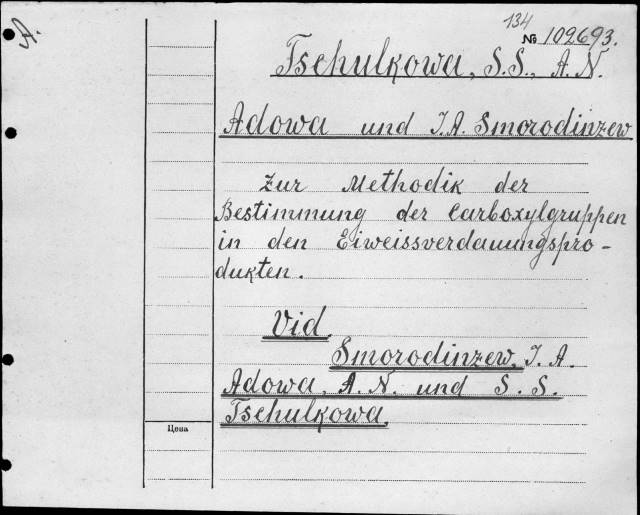 A.
134
№ 102693.
Tschulkowa, S.S., A.N.
Adowa und J.A. Smorodinzew
Zur Methodik der
Bestimmung der Carboxylgruppen
in den Eiweissverdauungspro-
dukten.
Vid.
Smorodinzew, J.A.
Adowa, A.N. und S.S.
Tschulkowa.
Цена